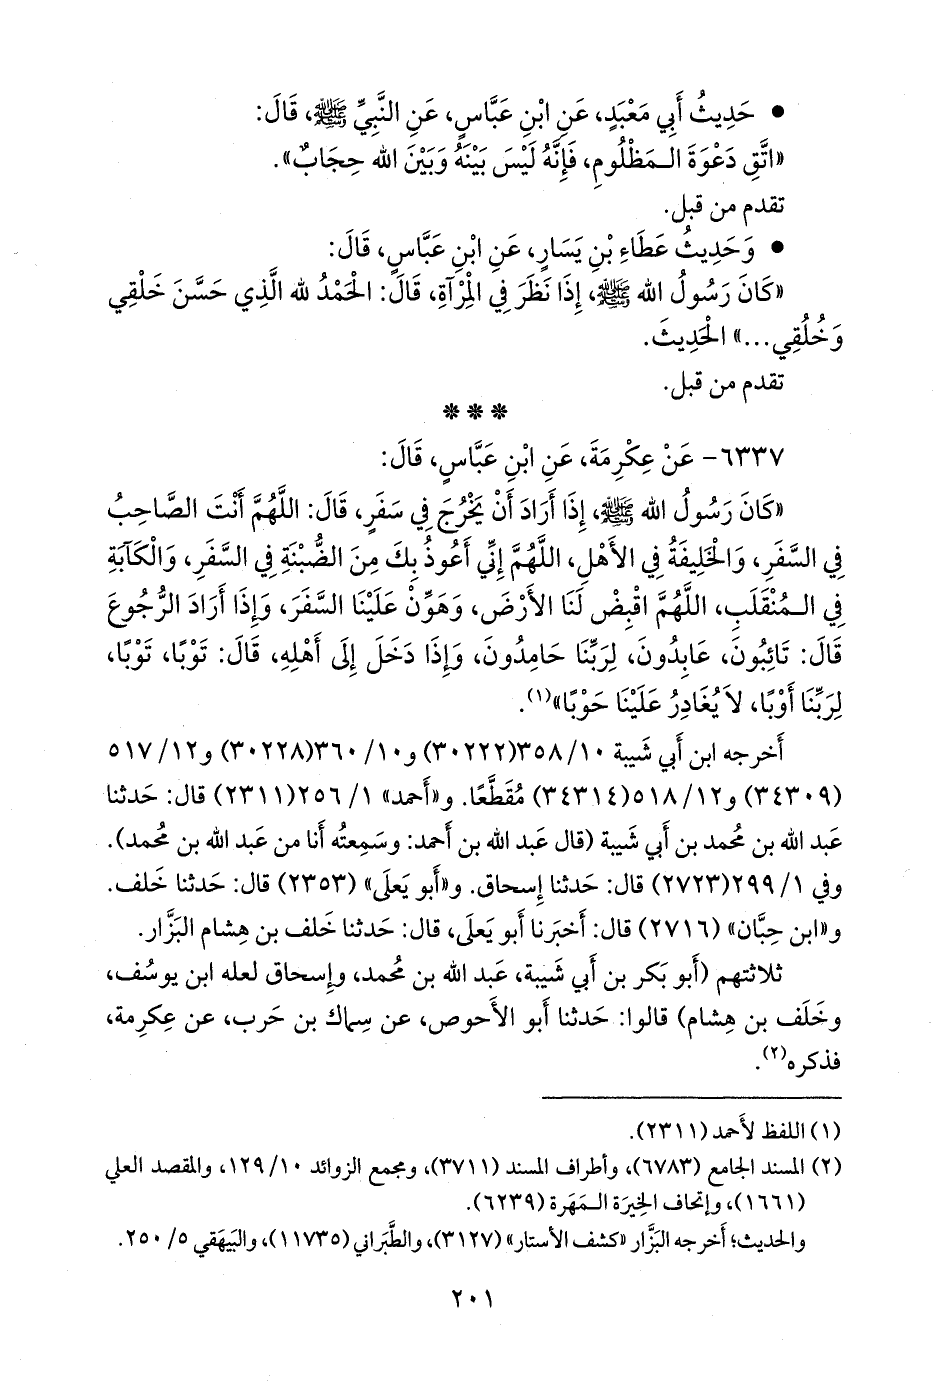 • حَدِيثُ أَبِي مَعْبَدٍ، عَنِ ابْنِ عَبَّاسٍ، عَنِ النَّبِيِّ ﷺ، قَالَ:
«اتَّقِ دَعْوَةَ الـمَظْلُومِ، فَإِنَّهُ لَيْسَ بَيْنَهُ وَبَيْنَ الله حِجَابٌ».
تقدم من قبل.
• وَحَدِيثُ عَطَاءِ بْنِ يَسَارٍ، عَنِ ابْنِ عَبَّاسٍ، قَالَ:
«كَانَ رَسُولُ الله ﷺ، إِذَا نَظَرَ فِي الْمِرْآةِ، قَالَ: الْحَمْدُ لله الَّذِي حَسَّنَ خَلْقِي
وَخُلُقِي...» الْحَدِيثَ.
تقدم من قبل.
***
٦٣٣٧- عَنْ عِكْرِمَةَ، عَنِ ابْنِ عَبَّاسٍ، قَالَ:
«كَانَ رَسُولُ الله ﷺ، إِذَا أَرَادَ أَنْ يَخْرُجَ فِي سَفَرٍ، قَالَ: اللَّهُمَّ أَنْتَ الصَّاحِبُ
فِي السَّفَرِ، وَالْخَلِيفَةُ فِي الأَهْلِ، اللَّهُمَّ إِنِّي أَعُوذُ بِكَ مِنَ الضُّبْنَةِ فِي السَّفَرِ، وَالْكَآبَةِ
فِي الـمُنْقَلَبِ، اللَّهُمَّ اقْبِضْ لَنَا الأَرْضَ، وَهَوِّنْ عَلَيْنَا السَّفَرَ، وَإِذَا أَرَادَ الرُّجُوعَ
قَالَ: تَائِبُونَ، عَابِدُونَ، لِرَبِّنَا حَامِدُونَ، وَإِذَا دَخَلَ إِلَى أَهْلِهِ، قَالَ: تَوْبًا، تَوْبًا،
لِرَبِّنَا أَوْبًا، لاَ يُغَادِرُ عَلَيْنَا حَوْبًا»(١).
أخرجه ابن أبي شَيبة ١٠/ ٣٥٨(٣٠٢٢٢) و١٠/ ٣٦٠(٣٠٢٢٨) و١٢/ ٥١٧
(٣٤٣٠٩) و١٢/ ٥١٨(٣٤٣١٤) مُقَطَّعًا. و«أحمد» ١/ ٢٥٦(٢٣١١) قال: حَدثنا
عَبد الله بن مُحمد بن أبي شَيبة (قال عَبد الله بن أَحمد: وسَمِعتُه أنا من عَبد الله بن مُحمد).
وفي ١/ ٢٩٩(٢٧٢٣) قال: حَدثنا إسحاق. و«أبو يَعلَى» (٢٣٥٣) قال: حَدثنا خَلف.
و«ابن حِبَّان» (٢٧١٦) قال: أَخبَرنا أبو يَعلَى، قال: حَدثنا خَلف بن هِشام البَزَّار.
ثلاثتهم (أَبو بَكر بن أبي شَيبة، عَبد الله بن مُحمد، وإِسحاق لعله ابن يوسُف،
وخَلَف بن هِشام) قالوا: حَدثنا أَبو الأَحوص، عن سِماك بن حَرب، عن عِكرِمة،
فذكره(٢).
(١) اللفظ لأحمد (٢٣١١).
(٢) المسند الجامع (٦٧٨٣)، وأطراف المسند (٣٧١١)، ومجمع الزوائد ١٠/ ١٢٩، والمقصد العلي
(١٦٦١)، وإتحاف الخِيرَة الـمَهَرة (٦٢٣٩).
والحديث؛ أخرجه البَزَّار «كشف الأستار» (٣١٢٧)، والطَّبَراني (١١٧٣٥)، والبَيهَقي ٥/ ٢٥٠.
٢٠١